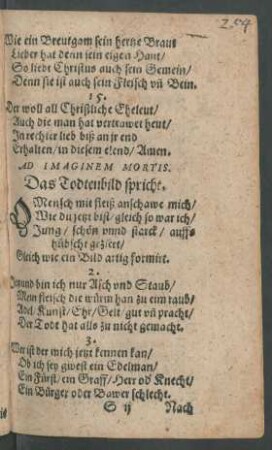 204
Wie ein Breutgom sein hertze Braut
Lieber hat denn sein eigen Haut/
So liebt Christus auch sein Gemein/
Denn sie ist auch sein Fleisch vñ Bein.
15.
Der woll all Christliche Eheleut/
Auch die man hat vertrawet heut/
In rechter lieb biß an jr end
Erhalten/ in diesem elend/ Amen.
AD IMAGINEM MORTIS.
Das Todtenbild spricht.
O Mensch mit fleiß anschawe mich/
Wie du jetzt bist/ gleich so war ich/
Jung/ schön vnnd starck/ auffs
hübscht geziert/
Gleich wie ein Bild artig formirt.
2.
Jetzund bin ich nur Asch vnd Staub/
Mein fleisch die würm han zu eim raub/
Adel/ Kunst/ Ehr/ Gelt/ gut vñ pracht/
Der Todt hat alls zu nicht gemacht.
3.
Wer ist der mich jetzt kennen kan/
Ob ich sey gwest ein Edelman/
Ein Fürst/ ein Graff/ Herr od Knecht/
Ein Bürger oder Bawer schlecht.
S ij Nach